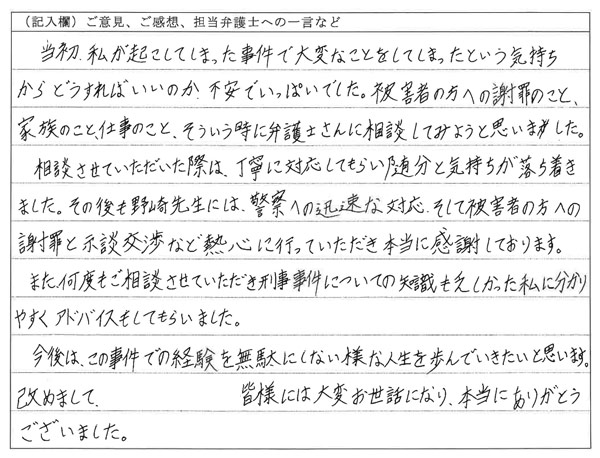 （記入欄）ご意見、ご感想、担当弁護士への一言など
当初、私が起こしてしまった事件で大変なことをしてしまったという気持ち
からどうすればいいのか、不安でいっぱいでした。被害者の方への謝罪のこと、
家族のこと、仕事のこと、そういう時に弁護士さんに相談してみようと思いました。
相談させていただいた際は、丁寧に対応してもらい随分と気持ちが落ち着き
ました。その後も野崎先生には、警察への迅速な対応、そして被害者の方への
謝罪と示談交渉など熱心に行っていただき本当に感謝しております。
また、何度もご相談させていただき刑事事件についての知識も乏しかった私に分かり
やすくアドバイスもしてもらいました。
今後は、この事件での経験を無駄にしない様な人生を歩んでいきたいと思います。
改めまして、 皆様には大変お世話になり、本当にありがとう
ございました。